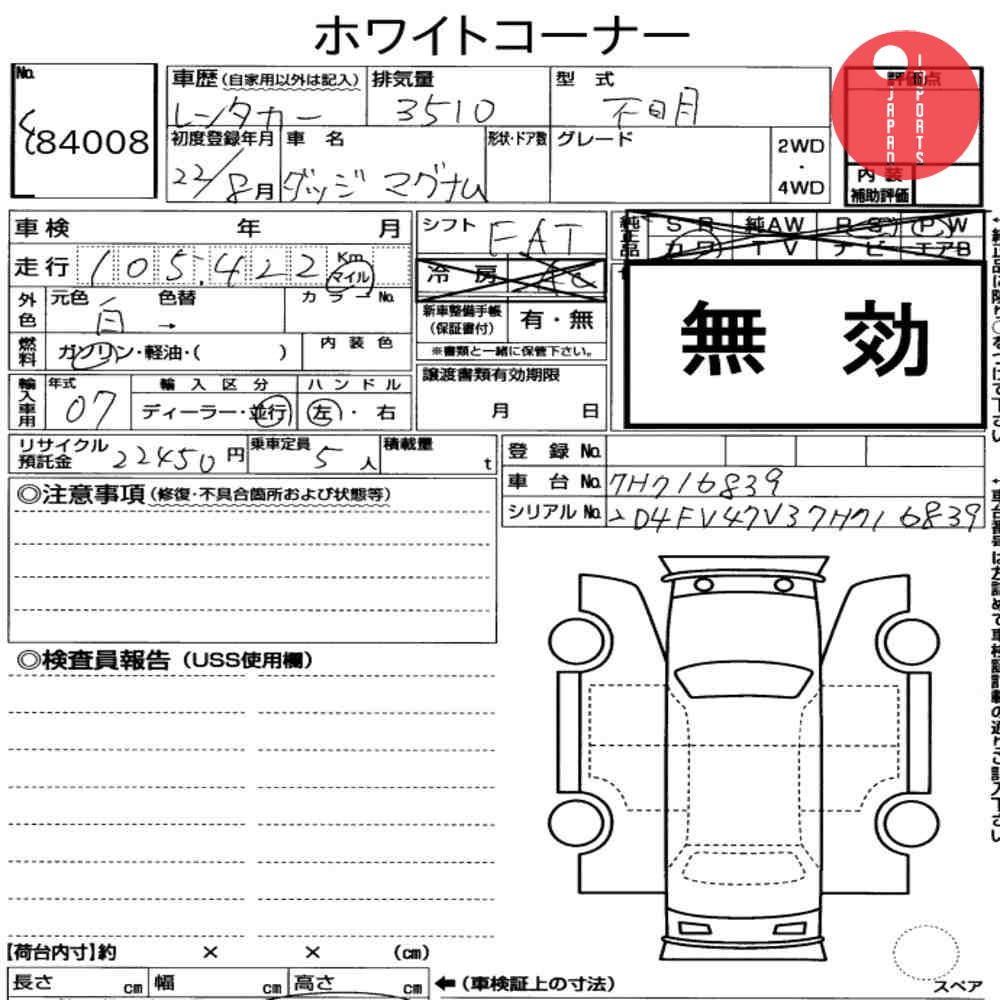 ホワイトコーナー
No.
84008
車歴 (自家用以外は記入) 排気量 型 式 評価点
レンタカー 3510 不明
初度登録年月 車 名 形状・ドア数 グレード 2WD・4WD
22/8月 ダッジ マグナム
内装補助評価
JAPAN
IMPORTS
車検 年 月 シフト FAT
純正品 SR 純AW RS PW
カワ TV ナビ エアB
走行 105,422 Km マイル
冷房 AC
外色 元色 白 色替 → カラーNo.
新車整備手帳(保証書付) 有・無
※書類と一緒に保管下さい。
無効
燃料 ガソリン・軽油・( ) 内装色
譲渡書類有効期限
月 日
輸入車用 年式 07 輸入区分 ディーラー・並行 ハンドル 左・右
リサイクル預託金 22450円 乗車定員 5人 積載量 t
登 録 No.
車 台 No. 7H716839
シリアル No. 2D4FV47V37H716839
◎注意事項 (修復・不具合箇所および状態等)
◎検査員報告 (USS使用欄)
【荷台内寸】約 × × (cm)
長さ cm 幅 cm 高さ cm ←(車検証上の寸法)
スペア
←純正品に限り○をつけて下さい